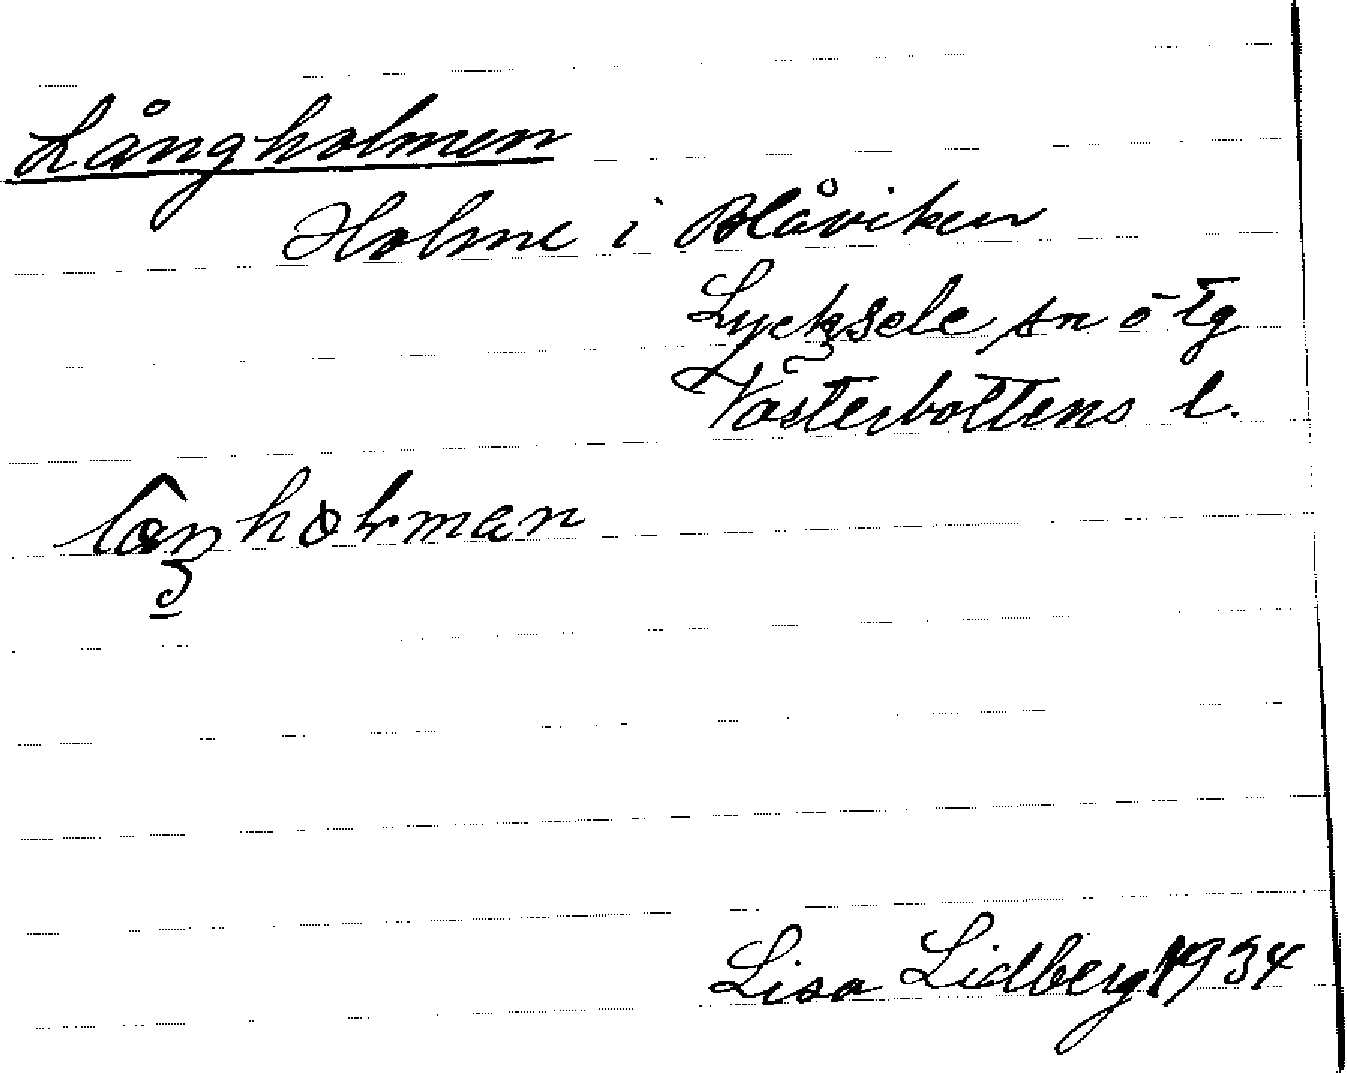 Långholmen
Holme i Blåviken
Lycksele sn o tg
Västerbottens l.
Lisa Lidberg 1934